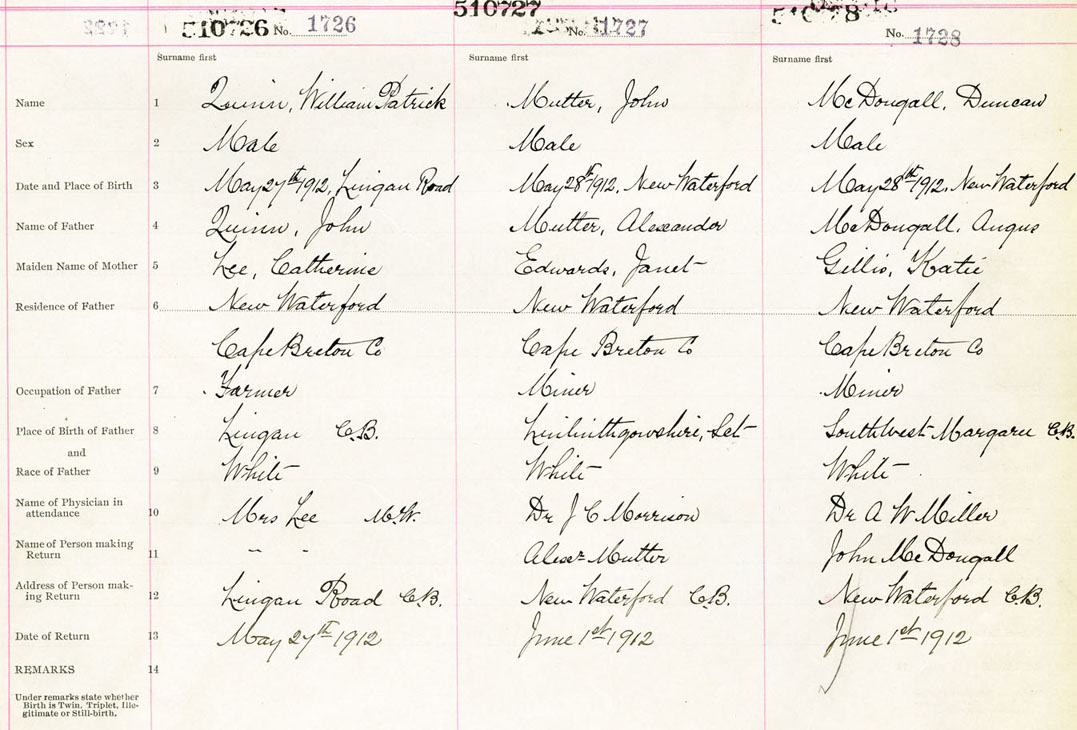 510726 No. 1726 510727 No. 1727 No. 1728
Surname first Surname first Surname first
Name 1 Quinn, William Patrick Mutter, John McDougall, Duncan
Sex 2 Male Male Male
Date and Place of Birth 3 May 27th 1912, Lingan Road May 28th 1912, New Waterford May 28th 1912, New Waterford
Name of Father 4 Quinn, John Mutter, Alexander McDougall, Angus
Maiden Name of Mother 5 Lee, Catherine Edwards, Janet Gillis, Katie
Residence of Father 6 New Waterford New Waterford New Waterford
Cape Breton Co Cape Breton Co Cape Breton Co
Occupation of Father 7 Farmer Miner Miner
Place of Birth of Father 8 Lingan C.B. Linlinthgowshire, Sct Southwest Margaree C.B.
and
Race of Father 9 White White White
Name of Physician in
attendance 10 Mrs Lee M.W. Dr J C Morrison Dr A W Miller
Name of Person making
Return 11 " " Alex Mutter John McDougall
Address of Person mak-
ing Return 12 Lingan Road C.B. New Waterford C.B. New Waterford C.B.
Date of Return 13 May 27th 1912 June 1st 1912 June 1st 1912
REMARKS 14
Under remarks state whether
Birth is Twin, Triplet, Ille-
gitimate or Still-birth.